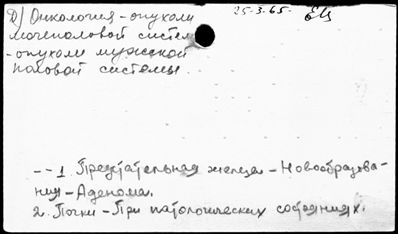 Д) Онкология - опухоли 25-3-65.
мочеполовой систем
- опухоли мужской
половой системы.
-- 1. Предстательная железа - Новообразова-
ния - Аденома.
2. Почки - При патологических состояниях.